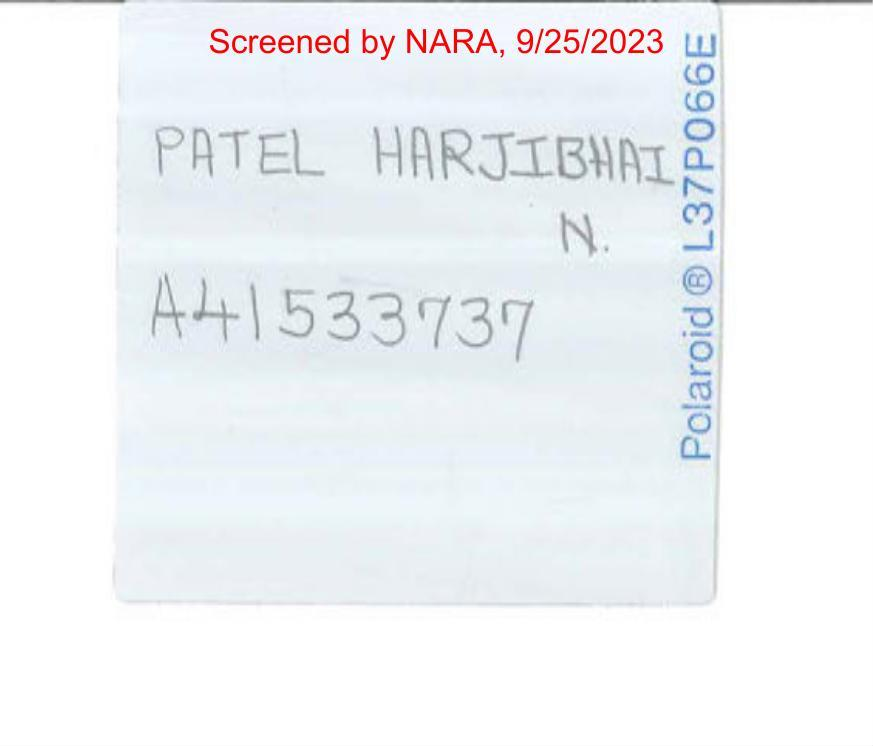 Screened by NARA, 9/25/2023
PATEL HARJIBHAI
N.
A41533737
Polaroid ® L37P066E